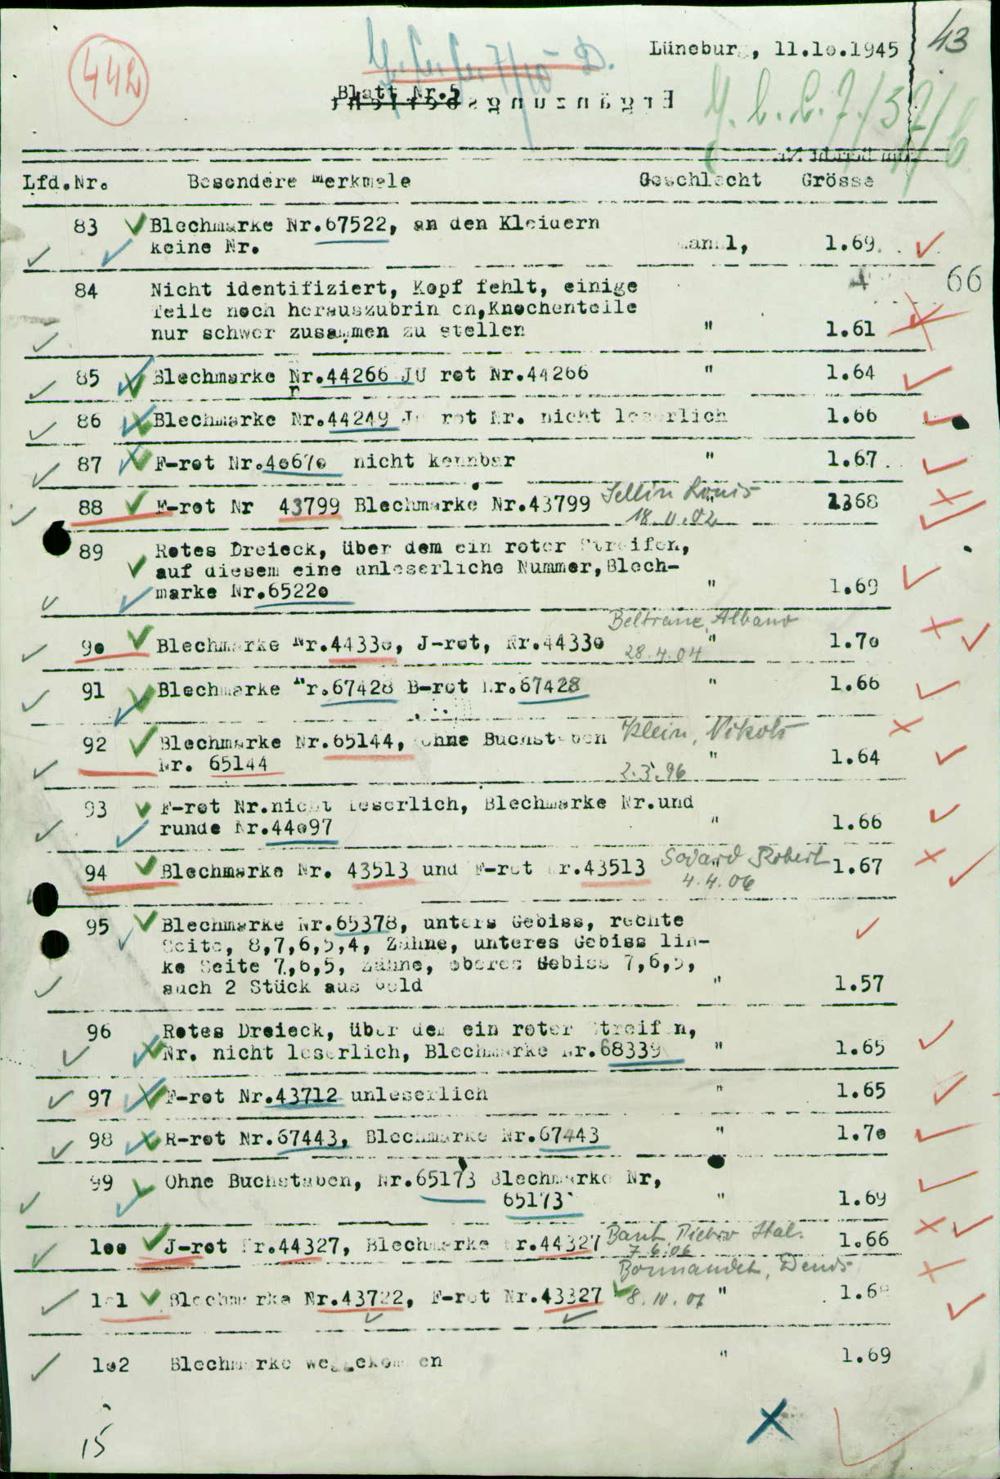 442
Lüneburg, 11.1o.1945
43
Blatt Nr.5
Ergänzungsbericht
Lfd.Nr. Besondere Merkmale Geschlecht Grösse
83 Blechmarke Nr.67522, an den Kleidern
keine Nr. männl, 1.69
66
84 Nicht identifiziert, Kopf fehlt, einige
Teile noch herauszubrin en,Knochenteile
nur schwer zusammen zu stellen " 1.61
85 Blechmarke Nr.44266 JU rot Nr.44266 " 1.64
86 Blechmarke Nr.44249 J rot Nr. nicht leserlich 1.66
87 F-rot Nr.4o67o nicht kennbar " 1.67
88 F-rot Nr 43799 Blechmarke Nr.43799 1368
18.11.02
89 Rotes Dreieck, über dem ein roter Streifen,
auf diesem eine unleserliche Nummer,Blech-
marke Nr.6522o " 1.69
Albano
9o Blechmarke Nr.4433o, J-rot, Nr.4433o " 1.7o
28.4.04
91 Blechmarke Nr.67428 B-rot Nr.67428 " 1.66
92 Blechmarke Nr.65144, ohne Buchstaben Klein, Nikols
Nr. 65144 " 1.64
2.3.96
93 F-rot Nr.nicht leserlich, Blechmarke Nr.und
runde Nr.44o97 " 1.66
94 Blechmarke Nr. 43513 und F-rot Nr.43513 Robert 1.67
4.4.06
95 Blechmarke Nr.65378, unters Gebiss, rechte
Seite, 8,7,6,5,4, Zähne, unteres Gebiss lin-
ke Seite 7,6,5, Zähne, oberes Gebiss 7,6,5,
auch 2 Stück aus Gold " 1.57
96 Rotes Dreieck, über dem ein roter Streifen,
Nr. nicht leserlich, Blechmarke Nr.68339 " 1.65
97 F-rot Nr.43712 unleserlich " 1.65
98 R-rot Nr.67443, Blechmarke Nr.67443 " 1.7o
99 Ohne Buchstaben, Nr.65173 Blechmarke Nr,
65173 " 1.69
1oo J-rot Nr.44327, Blechmarke Nr.44327 Pietro Ital. 1.66
7.6.06
Denis
1o1 Blechmarke Nr.43722, F-rot Nr.43327 8.10.01 " 1.6
1o2 Blechmarke weggekommen " 1.69
15